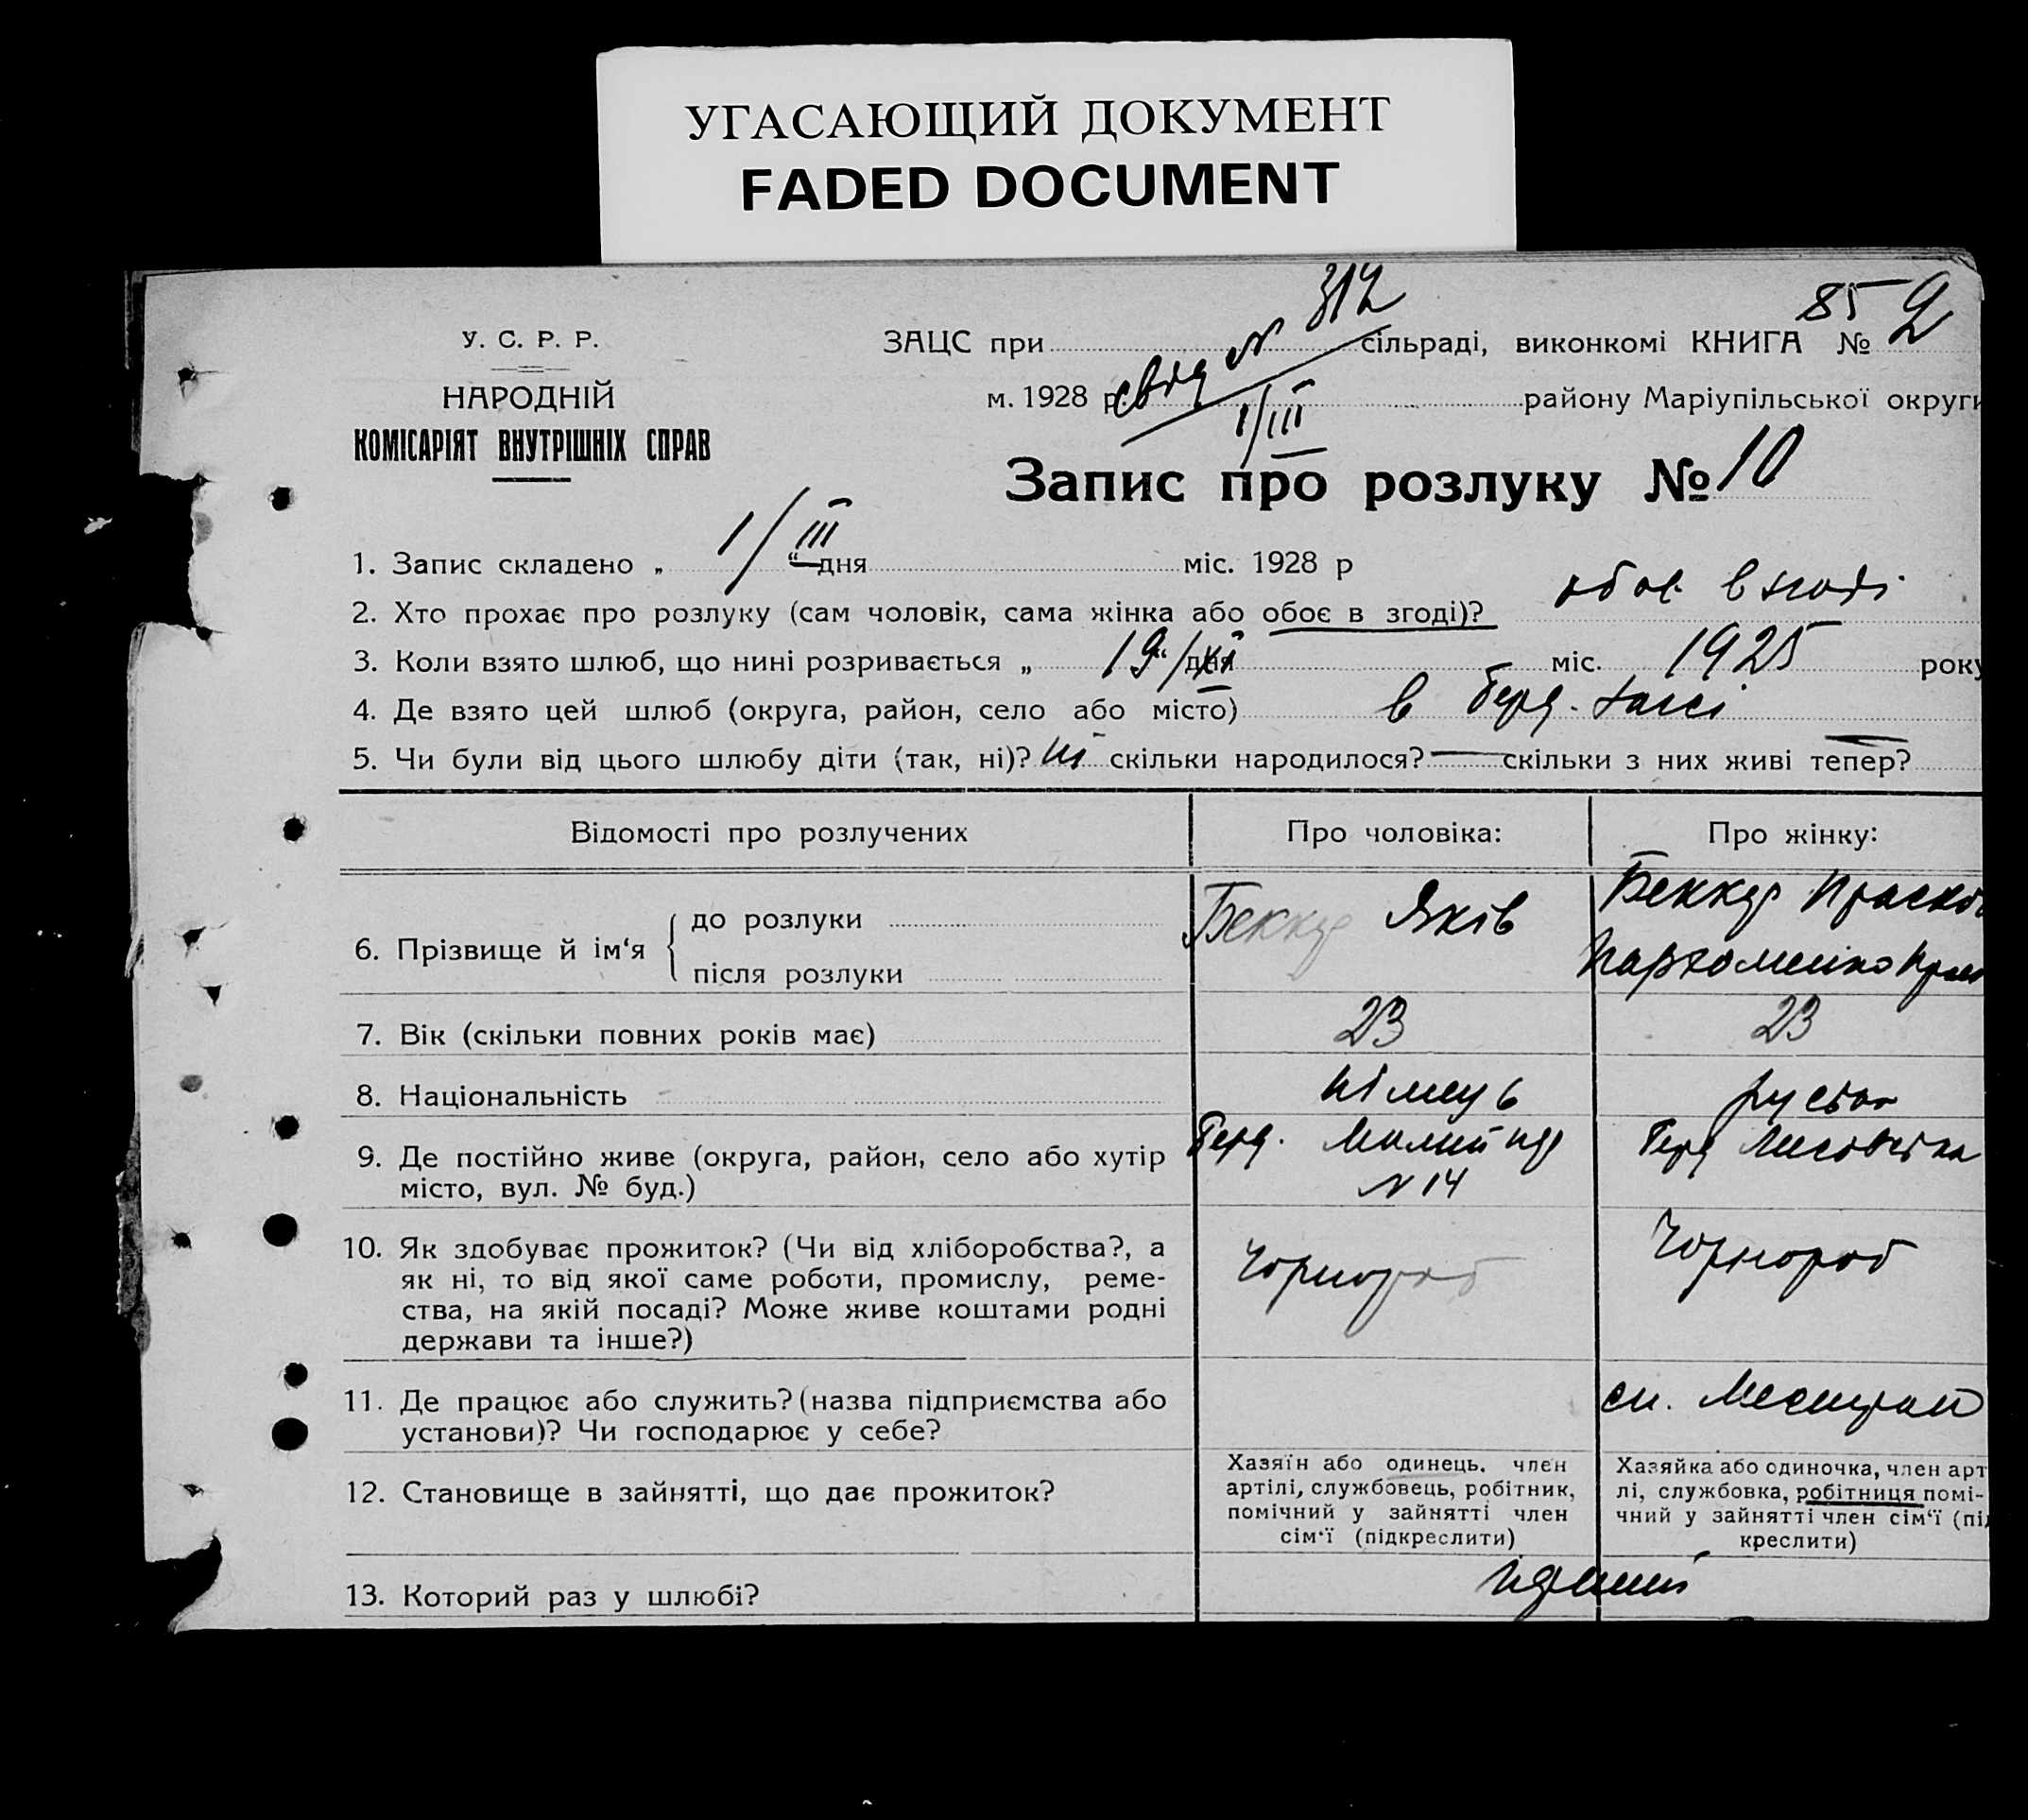 УГАСАЮЩИЙ ДОКУМЕНТ
FADED DOCUMENT
312
85 2
У. С. Р. Р.
ЗАЦС при сільраді, виконкомі КНИГА №
НАРОДНІЙ
КОМІСАРІЯТ ВНУТРІШНІХ СПРАВ
м. 1928 р. свід N району Маріупільської округи
1/III
Запис про розлуку № 10
1. Запис складено „ 1/III “ дня міс. 1928 р
2. Хто прохає про розлуку (сам чоловік, сама жінка або обоє в згоді)? обоє в згоді
3. Коли взято шлюб, що нині розривається „ 19 “ / XI дня міс. 1925 року
4. Де взято цей шлюб (округа, район, село або місто) в Берд. загсі
5. Чи були від цього шлюбу діти (так, ні)? ні скільки народилося? — скільки з них живі тепер? —
Відомості про розлучених Про чоловіка: Про жінку:
6. Прізвище й ім‘я до розлуки Беккер Яків Беккер Праско
після розлуки Пархоменко
7. Вік (скільки повних років має) 23 23
8. Національність німець руська
9. Де постійно живе (округа, район, село або хутір Берд. Берд Лисовська
місто, вул. № буд.) N 14
10. Як здобуває прожиток? (Чи від хліборобства?, а Чорнороб Чорнороб
як ні, то від якої саме роботи, промислу, реме-
ства, на якій посаді? Може живе коштами родні
держави та інше?)
11. Де працює або служить? (назва підприємства або
установи)? Чи господарює у себе?
12. Становище в зайнятті, що дає прожиток?
Хазяїн або одинець. член
артілі, службовець, робітник,
помічний у зайнятті член
сім‘ї (підкреслити)
Хазяйка або одиночка, член арт
лі, службовка, робітниця помі-
чний у зайнятті член сім‘ї (під
креслити)
13. Которий раз у шлюбі?